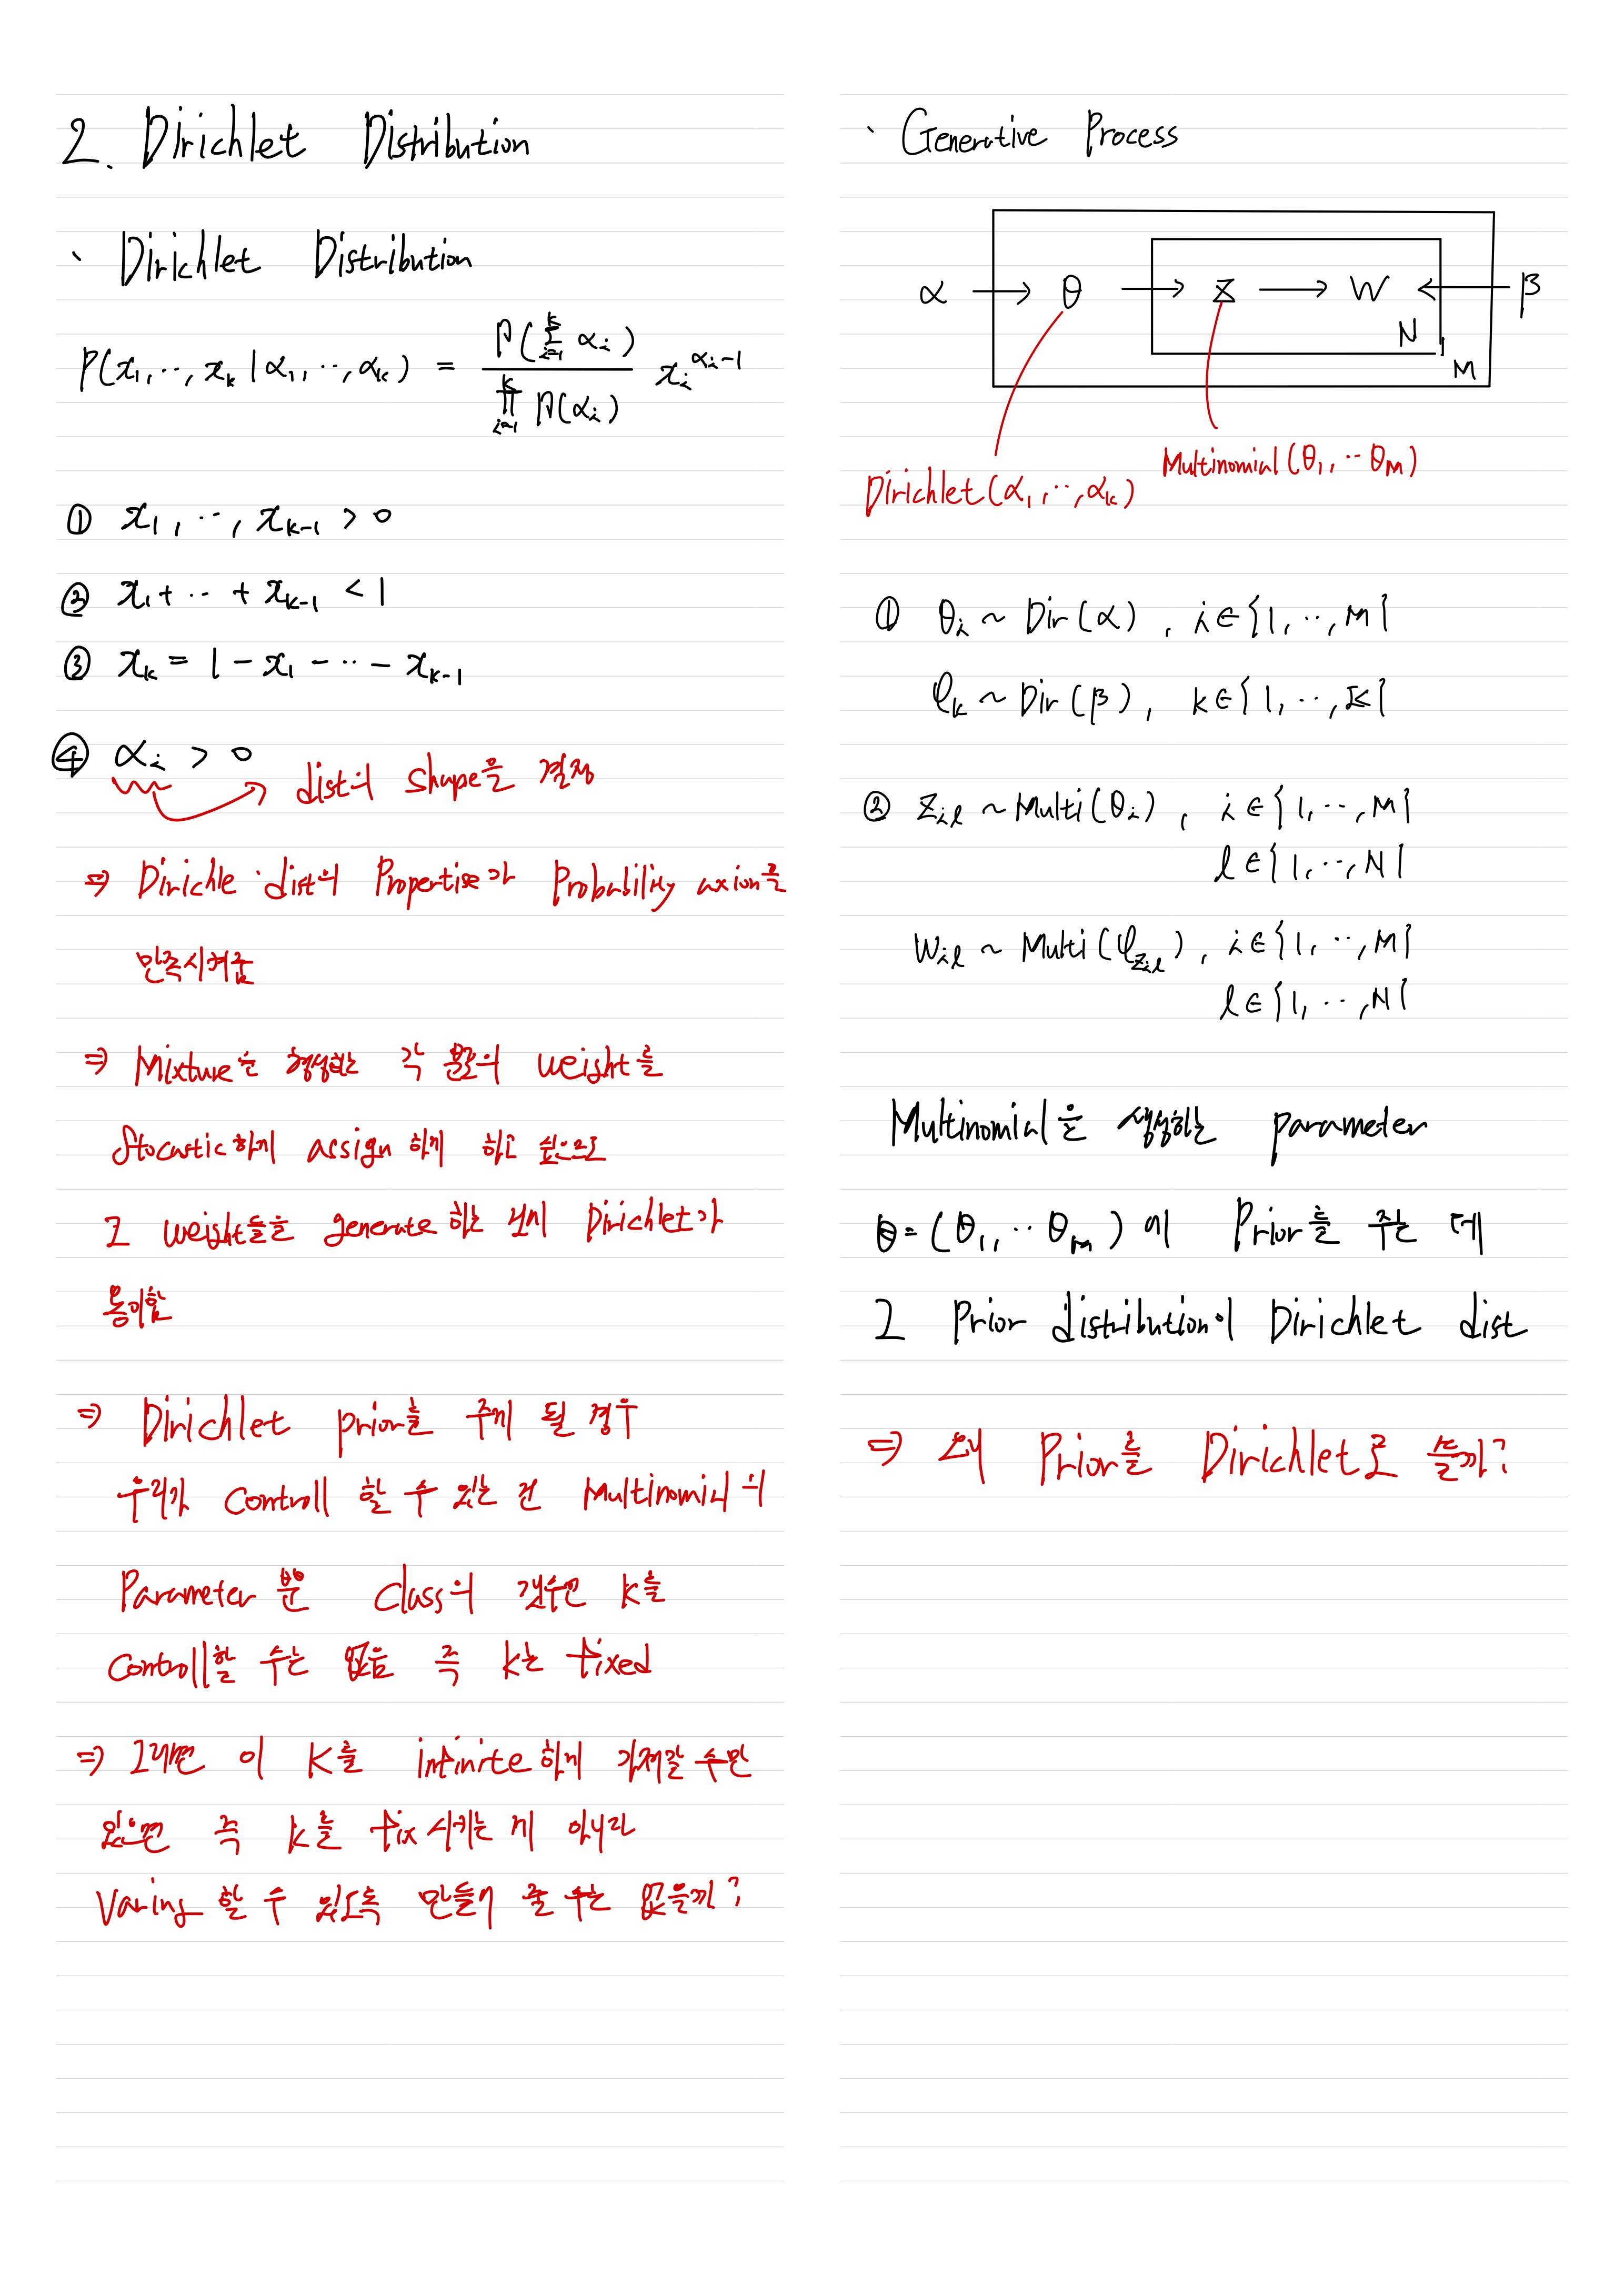 2. Dirichlet Distribution
· Dirichlet Distribution
P(x₁, ··, x_k | α₁, ··, α_k) = Γ(∑_{i=1}^{k} α_i) / ∏_{i=1}^{k} Γ(α_i) x_i^{α_i-1}
① x₁, ··, x_{k-1} > 0
② x₁ + ·· + x_{k-1} < 1
③ x_k = 1 - x₁ - ·· - x_{k-1}
④ α_i > 0
dist의 shape을 결정
⇒ Dirichle dist의 Propertise가 Probability axion을
만족시켜줌
⇒ Mixture을 형성하는 각 분포의 weight를
Stocastic하게 assign 하게 하고 싶으므로
그 weight들을 generate 하는 데에 Dirichlet가
용이함
⇒ Dirichlet prior를 주게 될 경우
우리가 Controll 할 수 있는 건 Multinomial의
Parameter 뿐 Class의 갯수인 k를
Controll할 수는 없음 즉 k는 fixed
⇒ 그러면 이 K를 infinite하게 가져갈 수만
있으면 즉 k를 fix 시키는 게 아니라
Varing 할 수 있도록 만들어 줄 수는 없을까?
· Generative Process
α → θ → Z → W ← β
N
M
Dirichlet(α₁, ··, α_k)
Multinomial(θ₁, ·· θ_M)
① θ_i ~ Dir(α), i∈{1, ··, M}
φ_k ~ Dir(β), k∈{1, ··, K}
② Z_{il} ~ Multi(θ_i), i∈{1, ··, M}
l∈{1, ··, N}
W_{il} ~ Multi(φ_{Z_{il}}), i∈{1, ··, M}
l∈{1, ··, N}
Multinomial을 생성하는 parameter
θ=(θ₁, ·· θ_m)에 Prior를 주는 데
그 Prior distribution이 Dirichlet dist
⇒ 왜 Prior를 Dirichlet로 둘까?